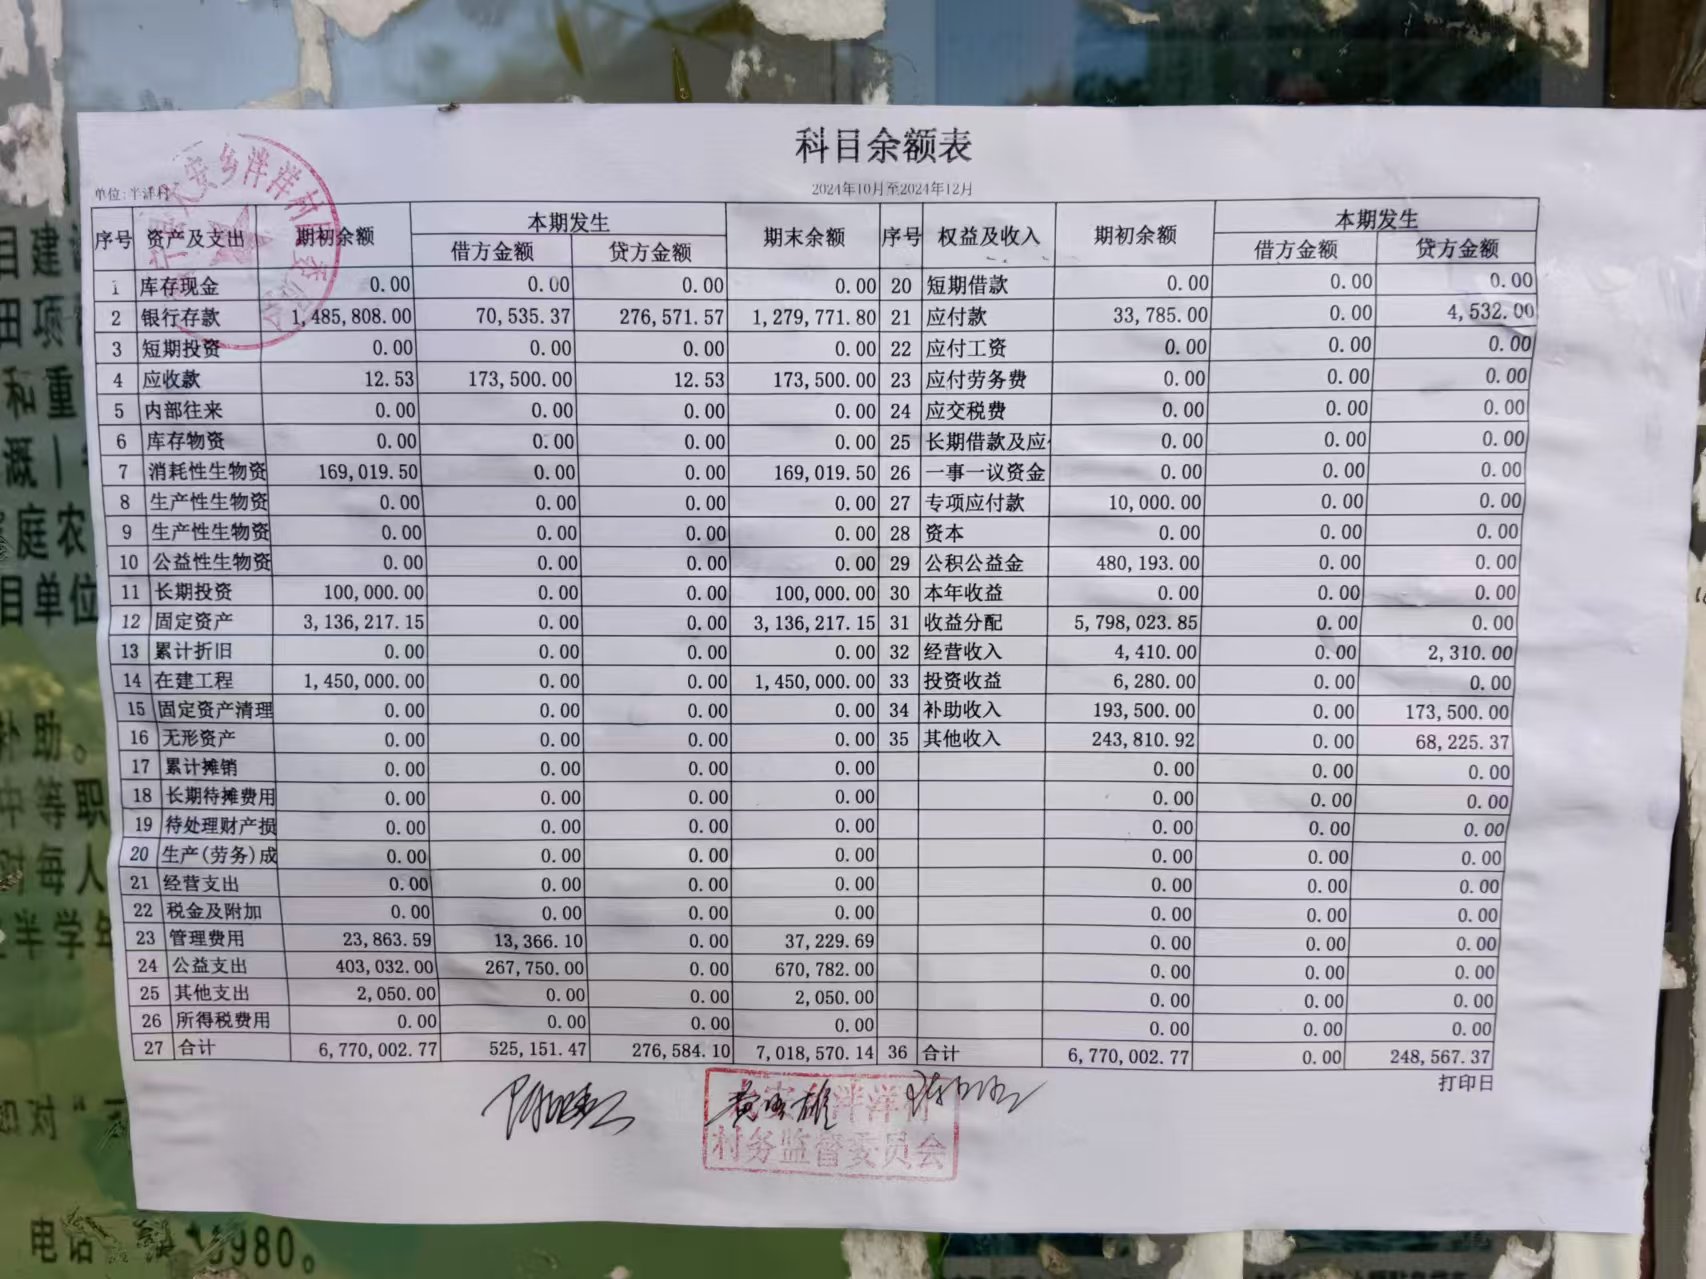 科目余额表
2024年10月至2024年12月
单位:半洋村
序号 资产及支出 期初余额 本期发生 期末余额 序号 权益及收入 期初余额 本期发生
借方金额 贷方金额 借方金额 贷方金额
1 库存现金 0.00 0.00 0.00 0.00 20 短期借款 0.00 0.00 0.00
2 银行存款 1,485,808.00 70,535.37 276,571.57 1,279,771.80 21 应付款 33,785.00 0.00 4,532.00
3 短期投资 0.00 0.00 0.00 0.00 22 应付工资 0.00 0.00 0.00
4 应收款 12.53 173,500.00 12.53 173,500.00 23 应付劳务费 0.00 0.00 0.00
5 内部往来 0.00 0.00 0.00 0.00 24 应交税费 0.00 0.00 0.00
6 库存物资 0.00 0.00 0.00 0.00 25 长期借款及应 0.00 0.00 0.00
7 消耗性生物资 169,019.50 0.00 0.00 169,019.50 26 一事一议资金 0.00 0.00 0.00
8 生产性生物资 0.00 0.00 0.00 0.00 27 专项应付款 10,000.00 0.00 0.00
9 生产性生物资 0.00 0.00 0.00 0.00 28 资本 0.00 0.00 0.00
10 公益性生物资 0.00 0.00 0.00 0.00 29 公积公益金 480,193.00 0.00 0.00
11 长期投资 100,000.00 0.00 0.00 100,000.00 30 本年收益 0.00 0.00 0.00
12 固定资产 3,136,217.15 0.00 0.00 3,136,217.15 31 收益分配 5,798,023.85 0.00 0.00
13 累计折旧 0.00 0.00 0.00 0.00 32 经营收入 4,410.00 0.00 2,310.00
14 在建工程 1,450,000.00 0.00 0.00 1,450,000.00 33 投资收益 6,280.00 0.00 0.00
15 固定资产清理 0.00 0.00 0.00 0.00 34 补助收入 193,500.00 0.00 173,500.00
16 无形资产 0.00 0.00 0.00 0.00 35 其他收入 243,810.92 0.00 68,225.37
17 累计摊销 0.00 0.00 0.00 0.00 0.00 0.00 0.00
18 长期待摊费用 0.00 0.00 0.00 0.00 0.00 0.00 0.00
19 待处理财产损 0.00 0.00 0.00 0.00 0.00 0.00 0.00
20 生产(劳务)成 0.00 0.00 0.00 0.00 0.00 0.00 0.00
21 经营支出 0.00 0.00 0.00 0.00 0.00 0.00 0.00
22 税金及附加 0.00 0.00 0.00 0.00 0.00 0.00 0.00
23 管理费用 23,863.59 13,366.10 0.00 37,229.69 0.00 0.00 0.00
24 公益支出 403,032.00 267,750.00 0.00 670,782.00 0.00 0.00 0.00
25 其他支出 2,050.00 0.00 0.00 2,050.00 0.00 0.00 0.00
26 所得税费用 0.00 0.00 0.00 0.00 0.00 0.00 0.00
27 合计 6,770,002.77 525,151.47 276,584.10 7,018,570.14 36 合计 6,770,002.77 0.00 248,567.37
打印日
泮洋村
村务监督委员会
目建
田项
和重
溉
庭农
目单位
补助。
中等职
时每人
半学年
如对
电话 980。